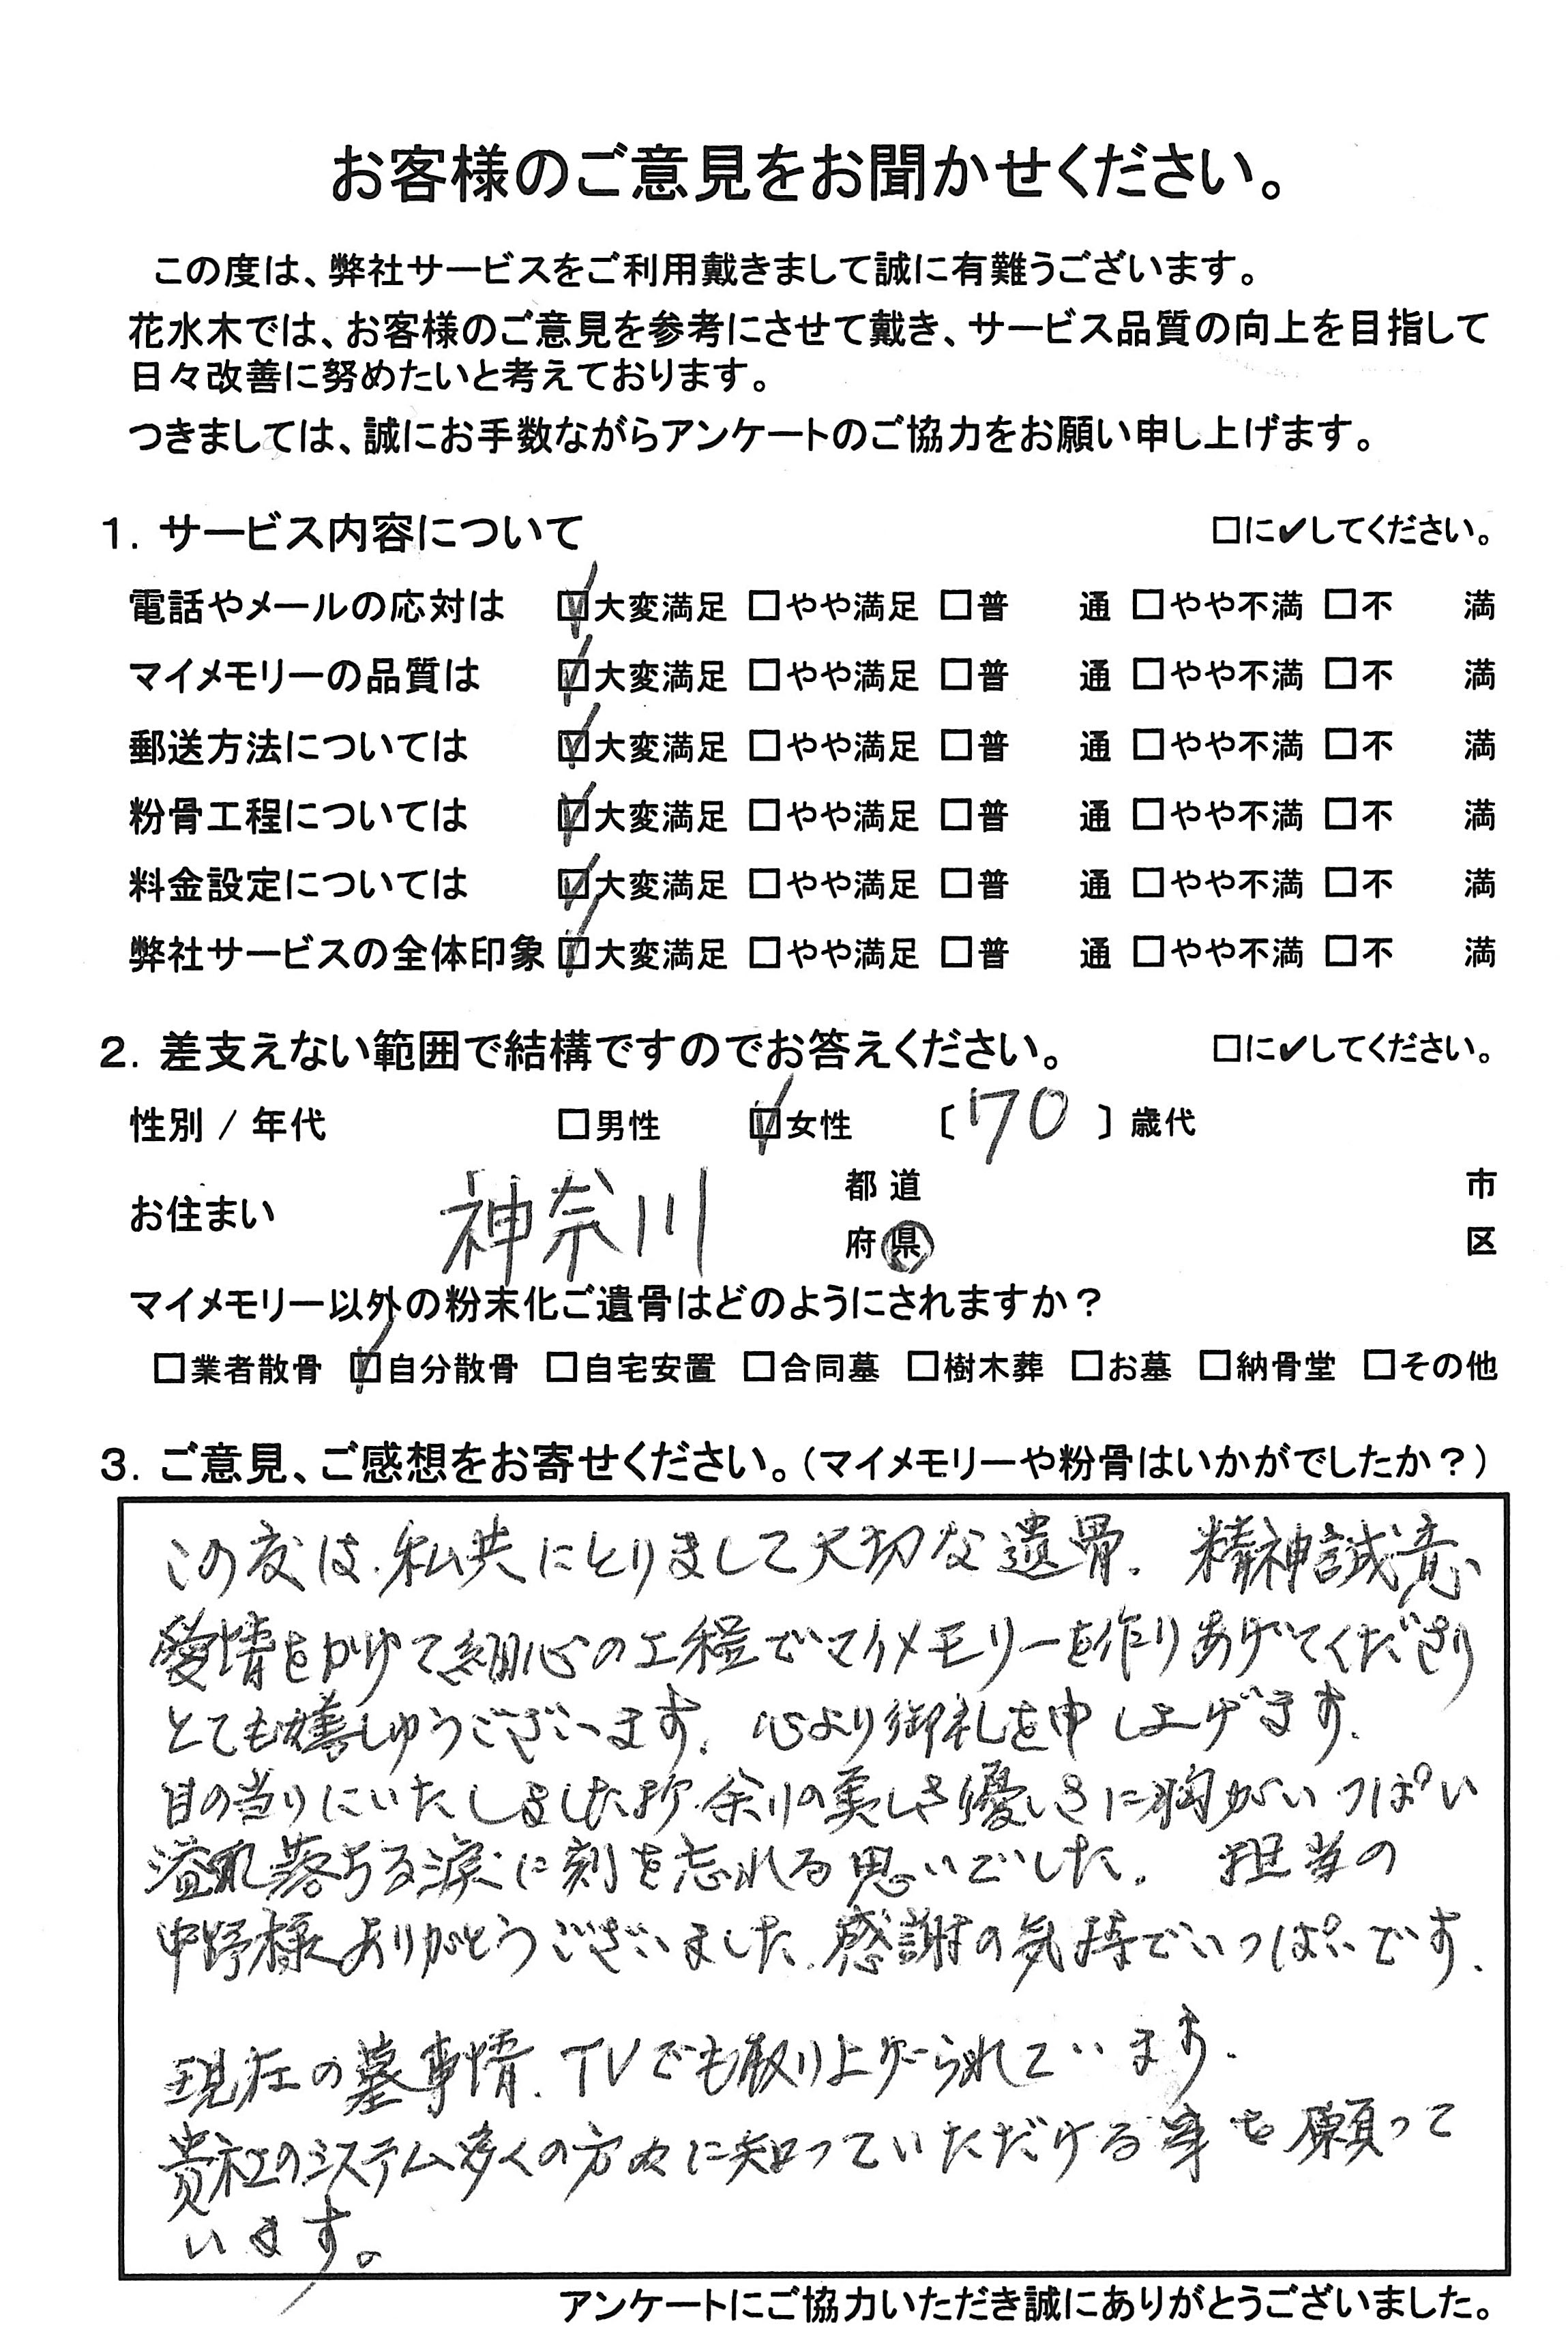 お客様のご意見をお聞かせください。
この度は、弊社サービスをご利用戴きまして誠に有難うございます。
花水木では、お客様のご意見を参考にさせて戴き、サービス品質の向上を目指して
日々改善に努めたいと考えております。
つきましては、誠にお手数ながらアンケートのご協力をお願い申し上げます。
1. サービス内容について □に✔してください。
電話やメールの応対は ☑大変満足 □やや満足 □普 通 □やや不満 □不 満
マイメモリーの品質は ☑大変満足 □やや満足 □普 通 □やや不満 □不 満
郵送方法については ☑大変満足 □やや満足 □普 通 □やや不満 □不 満
粉骨工程については ☑大変満足 □やや満足 □普 通 □やや不満 □不 満
料金設定については ☑大変満足 □やや満足 □普 通 □やや不満 □不 満
弊社サービスの全体印象 ☑大変満足 □やや満足 □普 通 □やや不満 □不 満
2. 差支えない範囲で結構ですのでお答えください。 □に✔してください。
性別 / 年代 □男性 ☑女性 〔 70 〕歳代
お住まい 神奈川 都 道 市
府 県 区
マイメモリー以外の粉末化ご遺骨はどのようにされますか？
□業者散骨 ☑自分散骨 □自宅安置 □合同墓 □樹木葬 □お墓 □納骨堂 □その他
3. ご意見、ご感想をお寄せください。（マイメモリーや粉骨はいかがでしたか？）
この度は、私共にとりまして大切な遺骨、精神誠意、
愛情をかけて細心の工程でマイメモリーを作りあげてくださり
とても嬉しゅうございます。心より御礼を申し上げます。
目の当りにいたしました折、余りの美しさ優しさに胸がいっぱい
溢れ落ちる涙に刻を忘れる思いでした。担当の
中野様ありがとうございました。感謝の気持でいっぱいです。
現在の墓事情、TVでも取り上げられています。
貴社のシステム多くの方々に知っていただける事を願って
います。
アンケートにご協力いただき誠にありがとうございました。